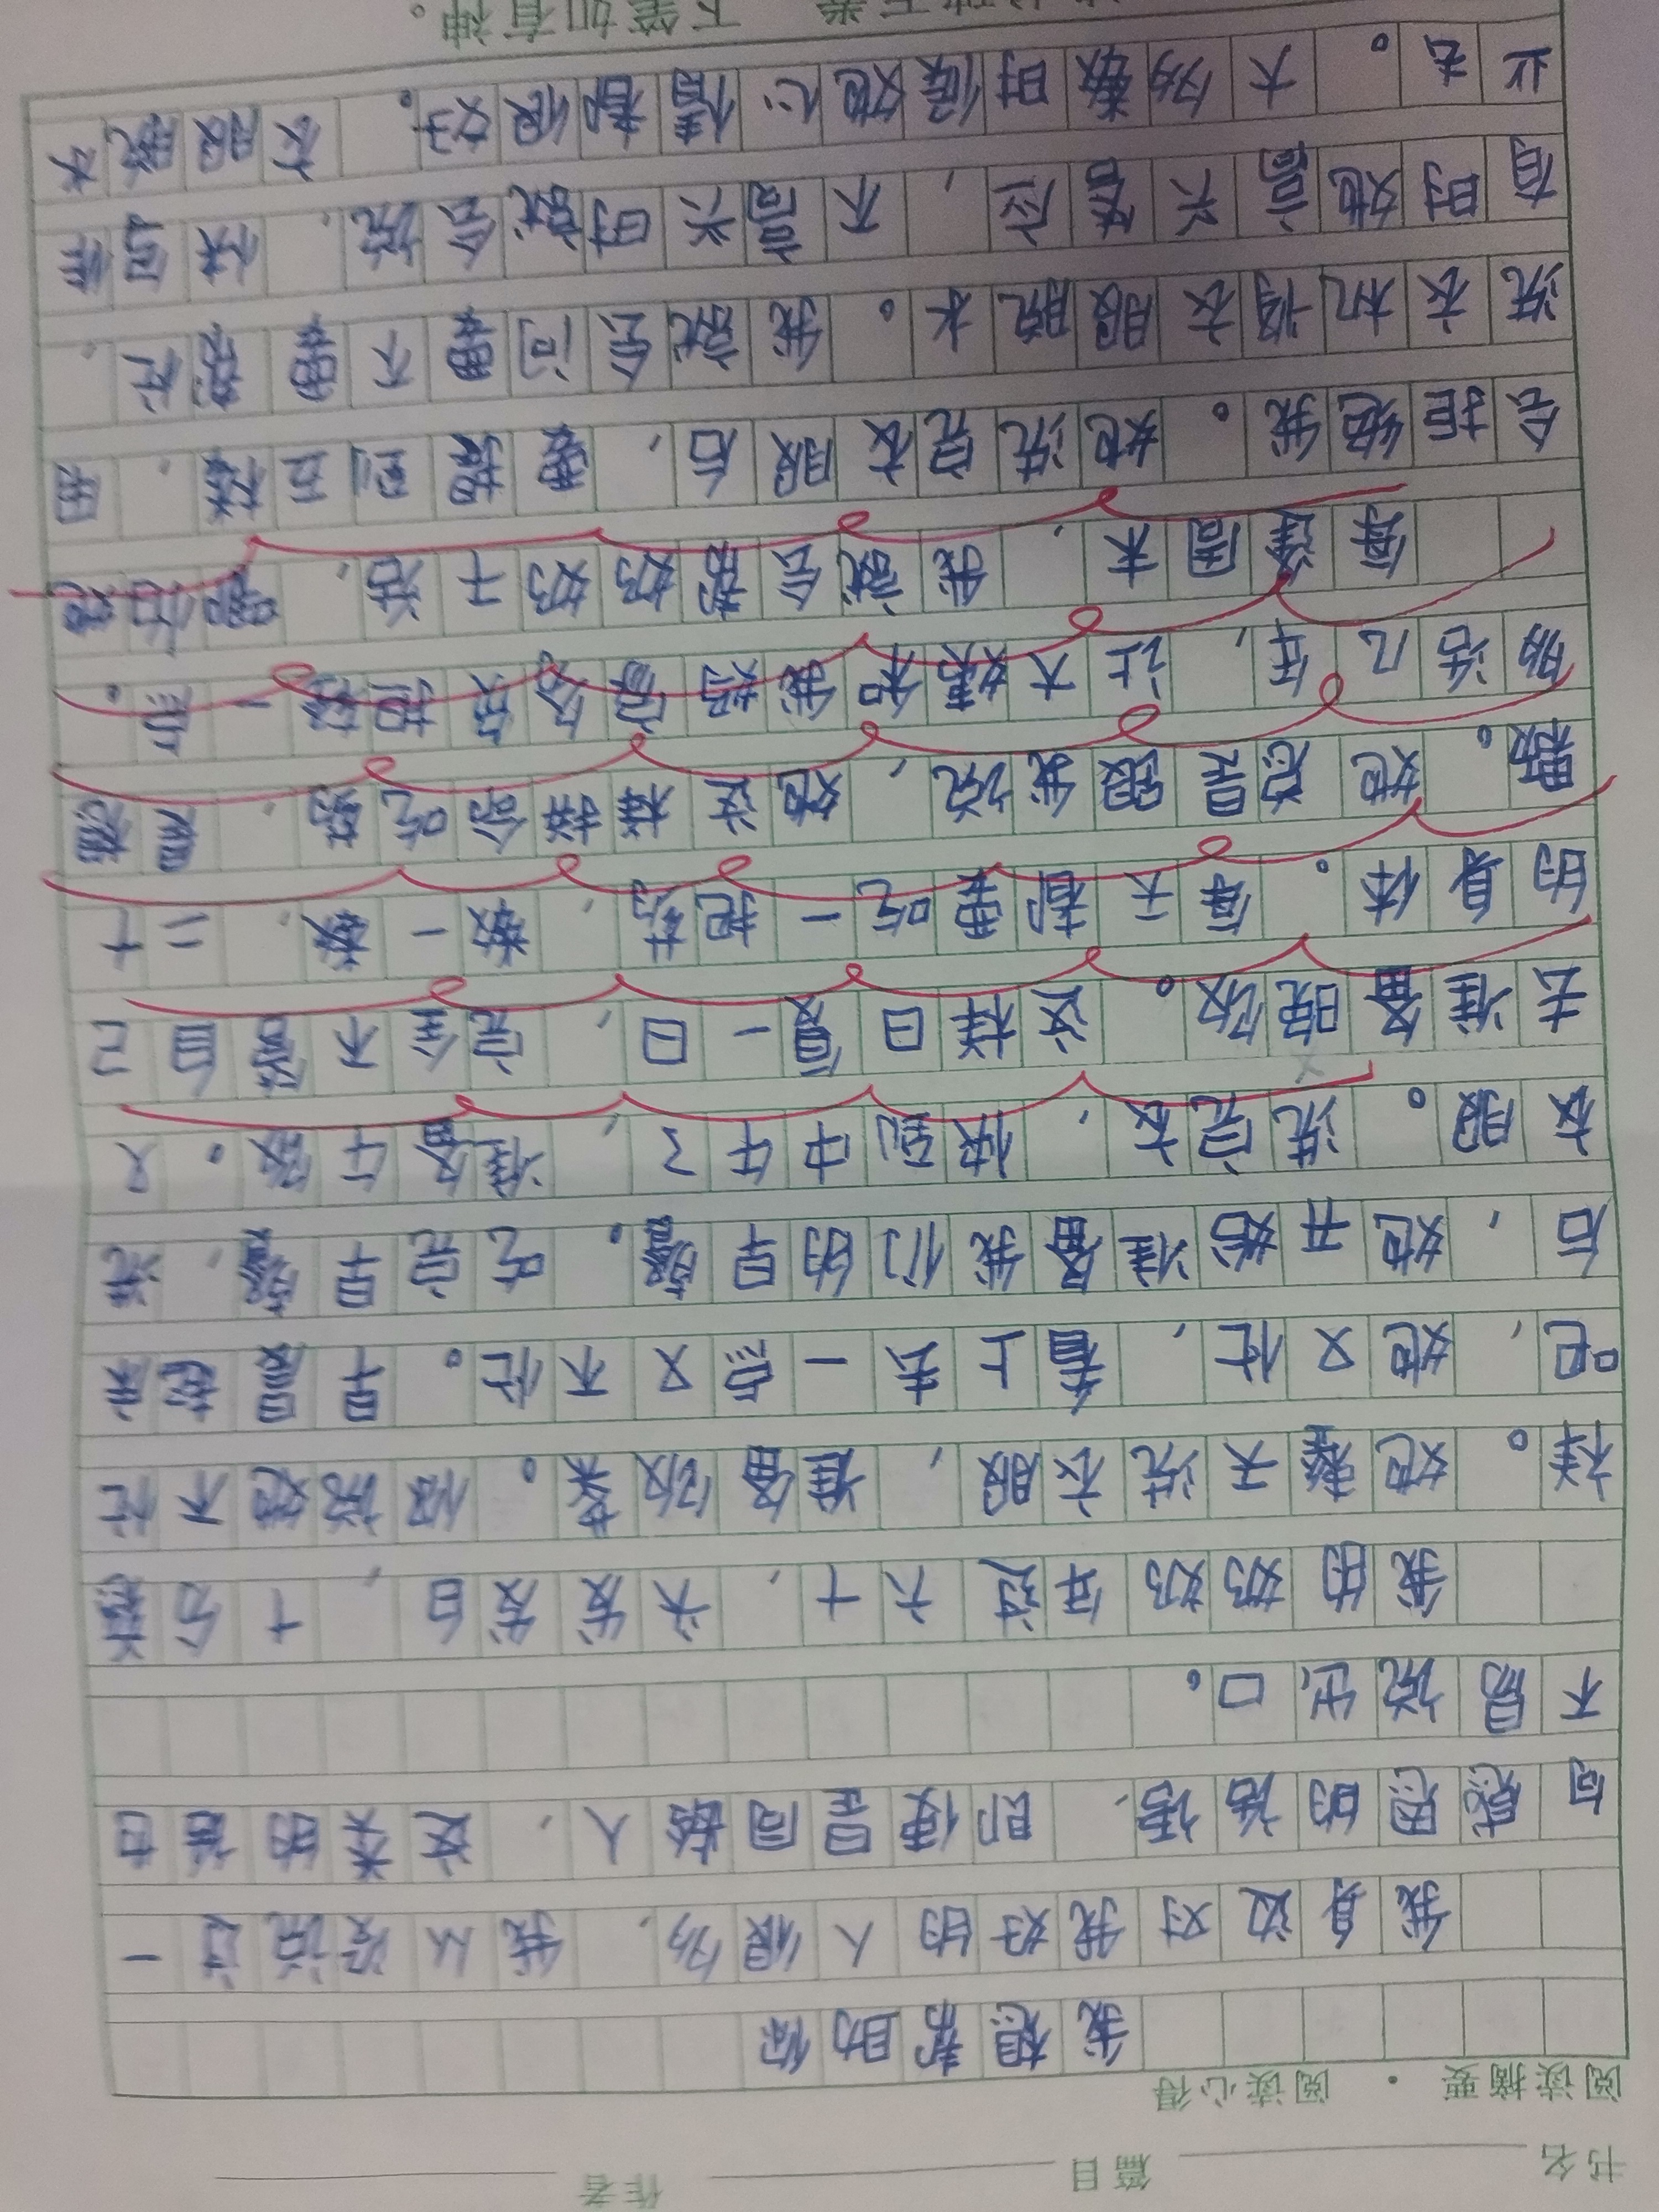 书名 篇目 作者
阅读摘要 · 阅读心得
我想帮助你
我身边对我好的人很多,我从没说过一
句感恩的话语,即使是同龄人,这类的话也
不曾说出口。
我的奶奶年过六十,头发发白,十分慈
祥。她整天洗衣服,准备饭菜。你说她不忙
吧,她又忙,看上去一点又不忙。早晨起床
后,她开始准备我们的早餐。吃完早餐,洗
衣服。洗完衣,快到中午了,准备午饭。又
去准备晚饭。这样日复一日,完全不顾自己
的身体。每天都要吃一把药,数一数,二十
颗。她总是跟我说,她这样拼命吃药,是想
多活几年,让大姨和我妈负担轻一点。
每逢周末,我就会帮奶奶干活,哪怕她
会拒绝我。她洗完衣服后,要提到五楼,用
洗衣机将衣服脱水。我就会问要不要帮忙,
有时她高兴答应,不高兴时就会说,快写作
业去。大多数时候她心情都很好。衣服脱水
破万卷 下笔如有神。